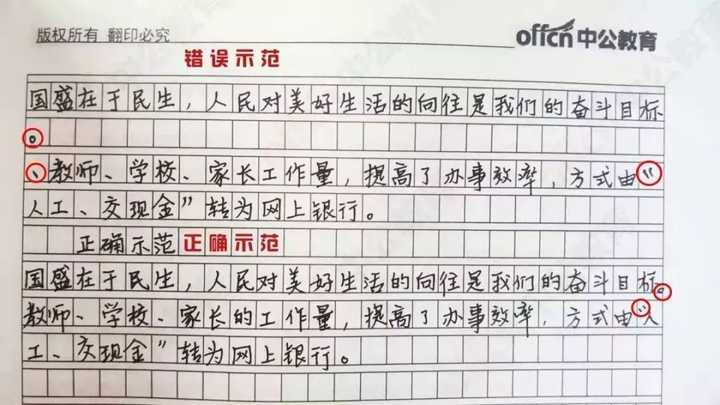 版权所有 翻印必究
offcn中公教育
错误示范
国盛在于民生，人民对美好生活的向往是我们的奋斗目标
。
、教师、学校、家长工作量，提高了办事效率，方式由“
人工、交现金”转为网上银行。
正确示范 正确示范
国盛在于民生，人民对美好生活的向往是我们的奋斗目标。
教师、学校、家长的工作量，提高了办事效率，方式由“人
工、交现金”转为网上银行。